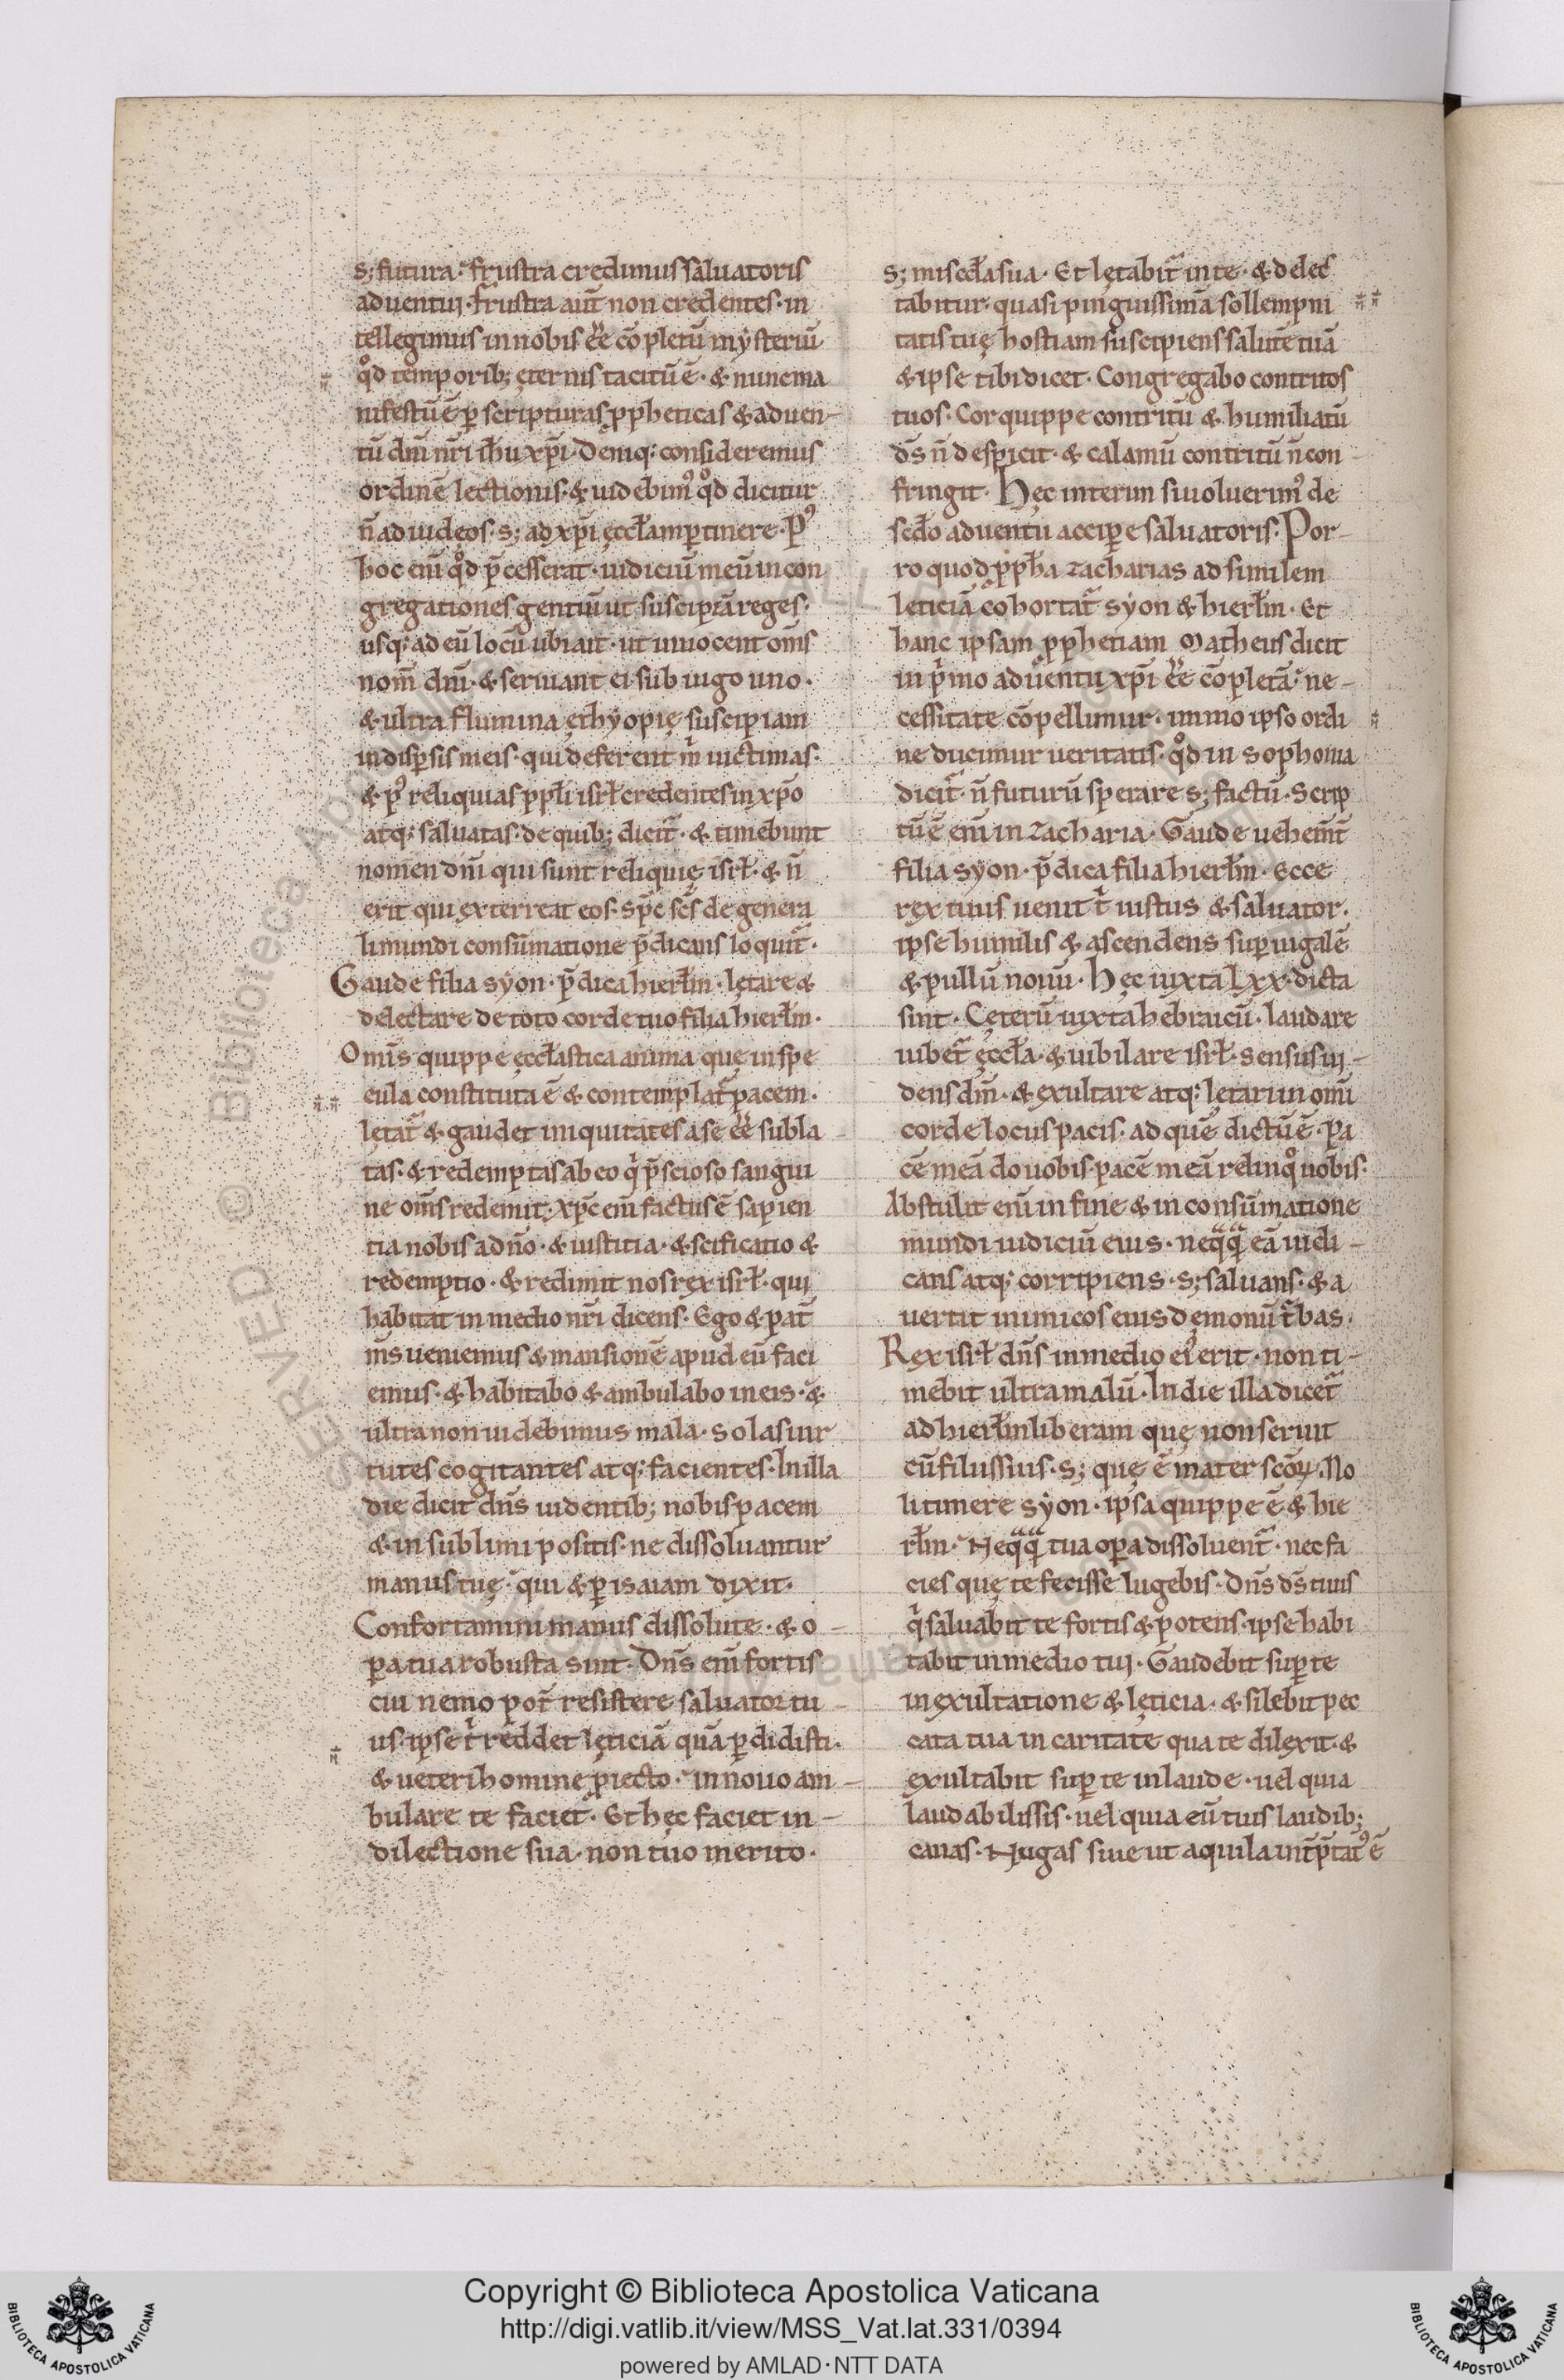 s; futura· frustra credimus saluatoris
aduentuj· frustra aut̄ non credentes· in
tellegimus in nobis ēē cōpletū mẏsteriū
qͦd temporib; ęternis tacitū ē· & nunc ma
nifestū ē ꝑ scripturas ꝓpheticas & aduen-
tū dn̄i nr̄i ih̄u xp̄i· Deniq; consideremus
ordinē lectionis· & uidebimꝰ qͦd dicitur
n̄ ad iudęos· s; ad xp̄i ęccłam ꝑtinere· Pꝰ
hoc eni̅ qͦd p̄cesserat· iudiciū meū in con
gregationes gentiū ut suscipiā reges·
usq; ad eū locū ubi ait· ut inuocent om̄s
nom̄ dn̄i· & seruiant ei sub iugo uno·
& ultra flumina ęthyopię suscipiam
in disꝑsis meis· qui deferent m̄ uictimas·
& pꝰ reliquias ppłi isrł credentes in xp̄o
atq; saluatas· de quib; dicit᷑· & timebunt
nomen dn̄i qui sunt reliquię isrł· & n̄
erit qui exterreat eos· sp̄c sc̄s de genera
li mundi consūmatione p̄dicans loquit᷑·
Gaude filia syon· p̄dica hierłm· lętare &
delectare de toto corde tuo filia hierłm·
Omīs quippe ęccłastica anima quę in spe
cula constituta ē & contemplat᷑ pacem·
lętat᷑ & gaudet iniquitates a se ēē subla-
tas· & redemptas ab eo qͥ p̄scioso sangui
ne om̄s redemit· xp̄c eni̅ factus ē sapien
tia nobis ad n̄o· & iustitia· & sc̄ificatio &
redemptio· & redimit nos rex isrł· qui
habitat in medio nr̄i dicens· Ego & pat̄
m̄s ueniemus & mansionē apud eū faci
emus· & habitabo & ambulabo in eis· &
ultra non uidebimus mala· solas uir
tutes cogitantes atq; facientes· In illa
die dicit dn̄s uidentib; nobis pacem
& in sublimi positis· ne dissoluantur
manus tuę· qui & ꝑ isaiam dixit·
Confortamini manus dissolute· & o-
ꝑa tua robusta sint· Dn̄s eni̅ fortis
cui nemo pot̄ resistere saluator tu-
us· ipse tͥ reddet lęticiā quā ꝑdidisti·
& ueteri homine ꝓiecto· in nouo am-
bulare te faciet· Et hęc faciet in-
dilectione sua· non tuo merito·
s; miscd̄ia sua· Et lętabit᷑ in te· & delec
tabitur· quasi pinguissimā sollempni
tatis tuę hostiam suscipiens salutē tuā
& ipse tibi dicet· Congregabo contritos
tuos· Cor quippe contritū & humiliatū
ds̄ n̄ despicit· & calamū contritū n̄ con-
fringit· Hęc interim si uoluerimꝰ de
scd̄o aduentu accipe saluatoris· Por-
ro quod ꝓph̄a zacharias ad similem
leticiā cohortat᷑ sẏon & hierłm· Et
hanc ipsam ꝓphetiam Matheus dicit
in pͥmo aduentu xp̄i ēē cōpletā· ne-
cessitate cōpellimur· immo ipso ordi
ne ducimur ueritatis· qͦd in sophonia
dicit᷑· n̄ futurū sperare s; factū· Scrip
tū ē eni̅ in zacharia· Gaude uehem̄t̄
filia syon· p̄dica filia hierłm· Ecce
rex tuus uenit tͥ iustus & saluator·
ipse humilis & ascendens suꝑ iugalē
& pullū nouū· Hęc iuxta lxx· dicta
sint· Cęterū iuxta hebraicū· laudare
iubet᷑ ęccła· & iubilare isrł· sensus uj-
dens dm̄· & exultare atq; lętari in omi̅
corde locus pacis· ad quē dictū ē· Pa
cē meā do uobis· pacē meā relinqͦ uobis·
Abstulit eni̅ in fine & in consūmatione
mundi iudiciū eius· neqͣqͣ eā iudi-
cans atq; corripiens· s; saluans· & a
uertit inimicos eius dęmonū tͥbas·
Rex isrł dn̄s in medio eiꝰ erit· non ti-
mebit ultra malū· In die illa dicet᷑
ad hierłm liberam quę non seruit
cū filiis suis· s; quę ē mater scōꝝ· No
li timere sẏon· ipsa quippe ē & hie
rłm· Neqͣqͣ tua oꝑa dissoluent᷑· nec fa
cies quę te fecisse lugebis· Dn̄s ds̄ tuus
qͥ saluabit te fortis & potens· ipse habi
tabit in medio tuj· Gaudebit suꝑ te
in exultatione & lęticia· & silebit pec
cata tua in caritate qua te dilexit· &
exultabit suꝑ te in laude· uel quia
laudabilis sis· uel quia eū tuis laudib;
canas· Nugas siue ut aquila int̄p̄tatꝰ ē
Copyright © Biblioteca Apostolica Vaticana
http://digi.vatlib.it/view/MSS_Vat.lat.331/0394
powered by AMLAD·NTT DATA
BIBLIOTECA APOSTOLICA VATICANA
BIBLIOTECA APOSTOLICA VATICANA